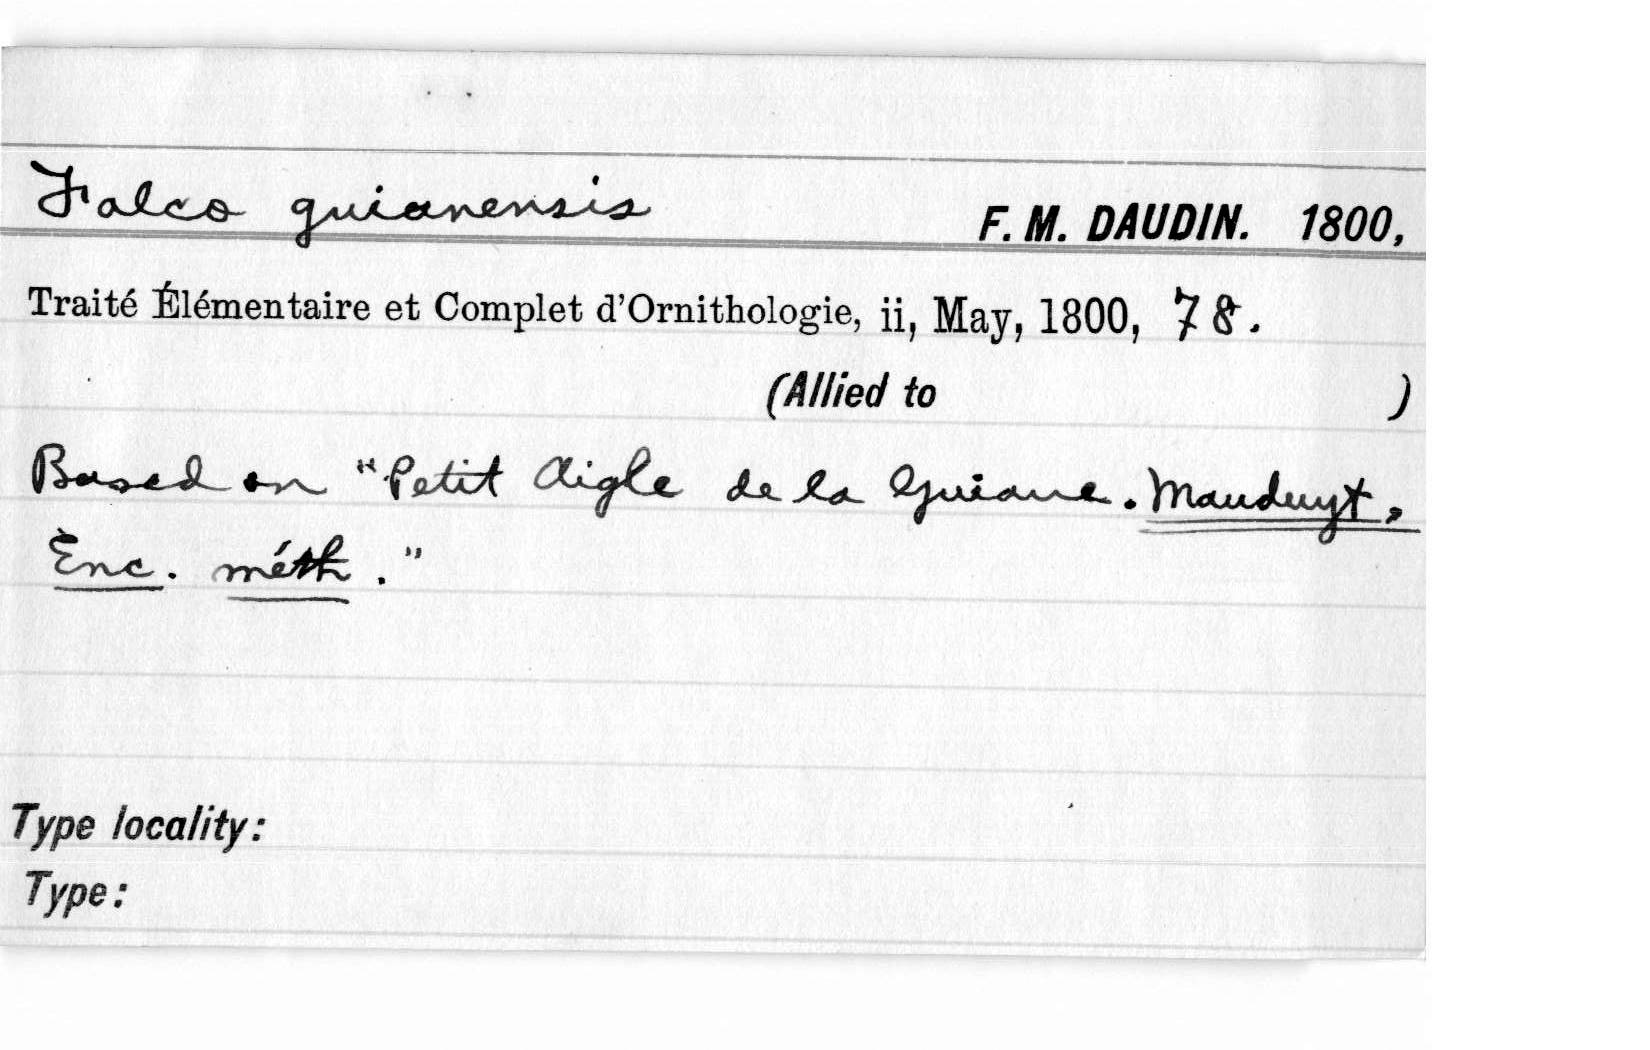 Falco guianensis F. M. DAUDIN. 1800,
Traité Élémentaire et Complet d'Ornithologie, ii, May, 1800, 78.
(Allied to )
Based on "Petit Aigle de la Guiane. Mauduyt,
Enc. méth."
Type locality:
Type: